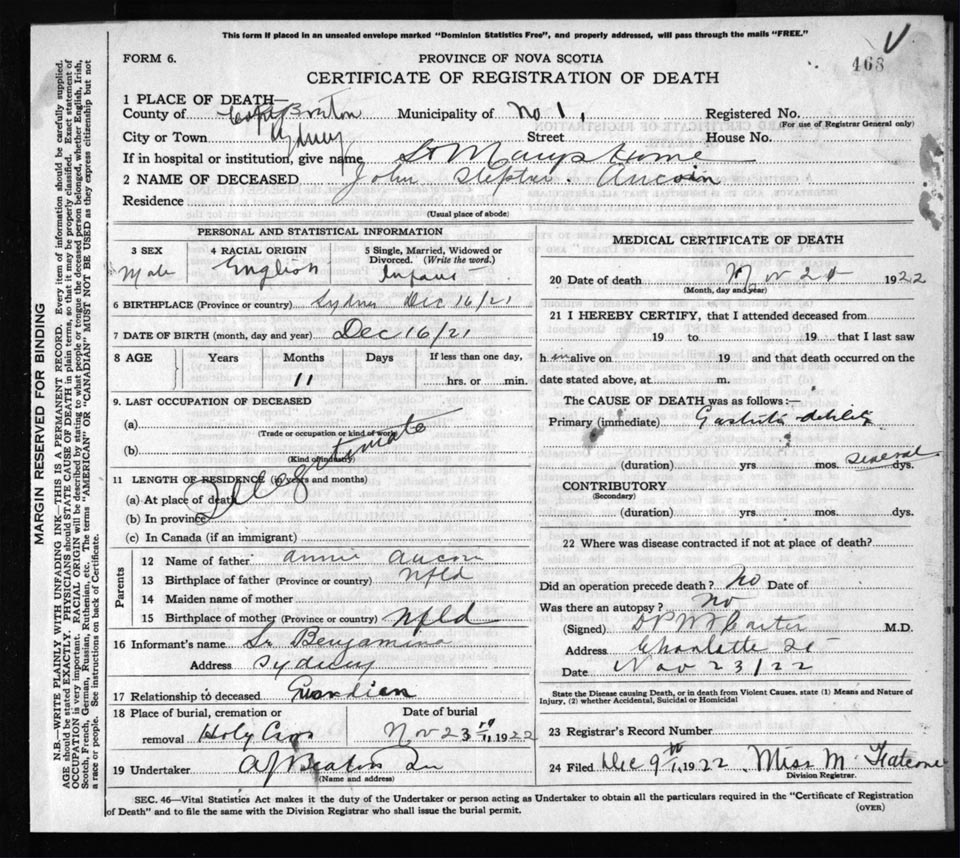 This form if placed in an unsealed envelope marked "Dominion Statistics Free", and properly addressed, will pass through the mails "FREE."
FORM 6.
PROVINCE OF NOVA SCOTIA
468
CERTIFICATE OF REGISTRATION OF DEATH
1 PLACE OF DEATH—
County of Cape Breton Municipality of No 1, Registered No.
(For use of Registrar General only)
City or Town Sydney Street House No.
If in hospital or institution, give name St Marys Home
2 NAME OF DECEASED John Stephen Aucoin
Residence
(Usual place of abode)
PERSONAL AND STATISTICAL INFORMATION
3 SEX 4 RACIAL ORIGIN 5 Single, Married, Widowed or Divorced. (Write the word.)
Male English Infant
6 BIRTHPLACE (Province or country) Sydney Dec 16/21
7 DATE OF BIRTH (month, day and year) Dec 16/21
8 AGE Years Months Days If less than one day,
11 hrs. or min.
9. LAST OCCUPATION OF DECEASED
(a)
(Trade or occupation or kind of work)
(b)
(Kind of industry)
Illegitimate
11 LENGTH OF RESIDENCE (in years and months)
(a) At place of death
(b) In province
(c) In Canada (if an immigrant)
Parents
12 Name of father Annie Aucoin
13 Birthplace of father (Province or country) Nfld
14 Maiden name of mother
15 Birthplace of mother (Province or country) Nfld
16 Informant's name Sr Benjamina
Address Sydney
17 Relationship to deceased Guardian
18 Place of burial, cremation or removal Holy Cross
Date of burial Nov 23 rd 1922
19 Undertaker
(Name and address)
MEDICAL CERTIFICATE OF DEATH
20 Date of death Nov 1922
(Month, day and year)
21 I HEREBY CERTIFY, that I attended deceased from
19 to 19 that I last saw
h im alive on 19 and that death occurred on the
date stated above, at m.
The CAUSE OF DEATH was as follows:—
Primary (immediate)
(duration) yrs mos. several dys.
CONTRIBUTORY
(Secondary)
(duration) yrs. mos. dys.
22 Where was disease contracted if not at place of death?
Did an operation precede death? No Date of
Was there an autopsy? No
(Signed) M.D.
Address Charlotte St
Date Nov 23/22
State the Disease causing Death, or in death from Violent Causes, state (1) Means and Nature of
Injury, (2) whether Accidental, Suicidal or Homicidal
23 Registrar's Record Number
24 Filed Dec 9th 1922 Miss M
Division Registrar.
SEC. 46—Vital Statistics Act makes it the duty of the Undertaker or person acting as Undertaker to obtain all the particulars required in the "Certificate of Registration
of Death" and to file the same with the Division Registrar who shall issue the burial permit.
(OVER)
MARGIN RESERVED FOR BINDING
N.B.—WRITE PLAINLY WITH UNFADING INK—THIS IS A PERMANENT RECORD. Every item of information should be carefully supplied.
AGE should be stated EXACTLY. PHYSICIANS should STATE CAUSE OF DEATH in plain terms, so that it may be properly classified. Exact statement of
OCCUPATION is very important. RACIAL ORIGIN will be described by stating to what people or tongue the deceased person belonged, whether English, Irish,
Scotch, French, German, Russian, Ruthenian, etc. The terms "AMERICAN" OR "CANADIAN" MUST NOT BE USED as they express citizenship but not
a race or people. See instructions on back of Certificate.